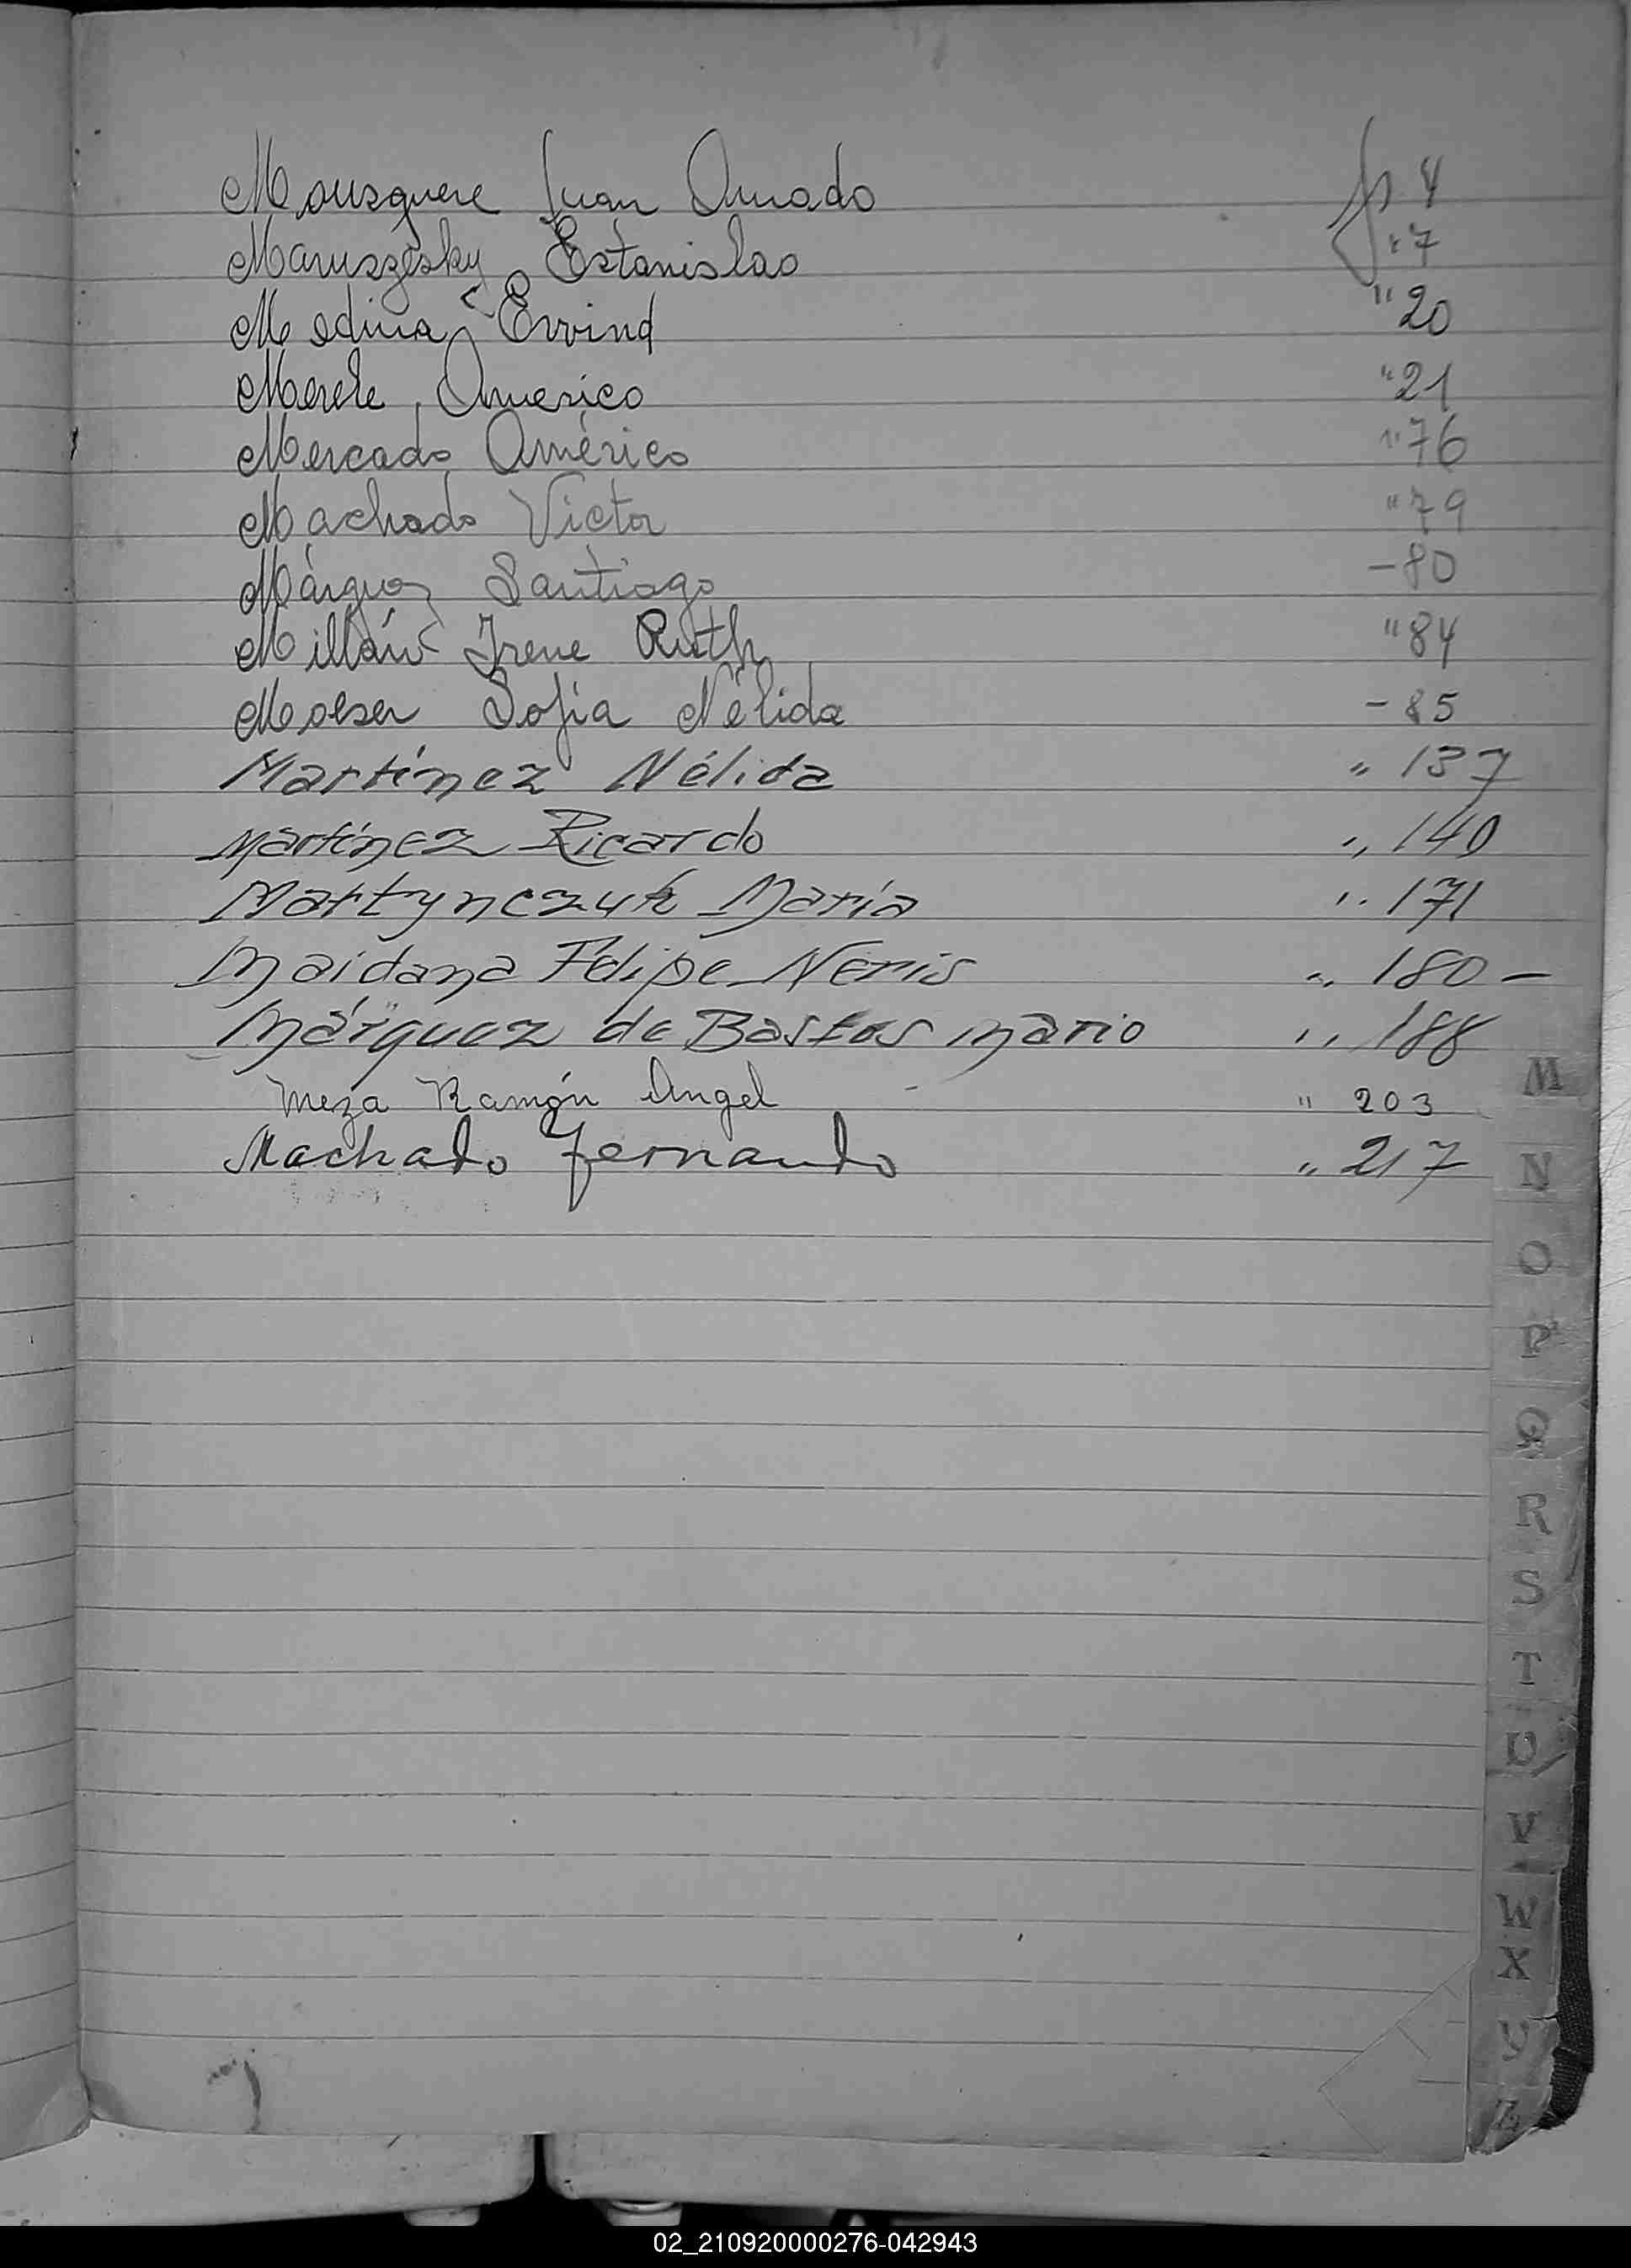 Mousquere Juan Amado fs 4
Maruszesky Estanislao " 7
Medina Ervind " 20
Merele Americo " 21
Mercado Américo " 76
Machado Victor " 79
Márquez Santiago - 80
Millán Irene Ruth " 84
Moeser Sofia Nélida - 85
Martínez Nélida " 137
Martínez Ricardo " 140
Martynczuk María " 171
Maidana Felipe Neris " 180 -
Márquez de Bastos Mario " 188
Meza Ramón Angel " 203
Machado Fernando " 217
M
N
O
P
Q
R
S
T
U
V
W
X
Y
Z
02_210920000276-042943